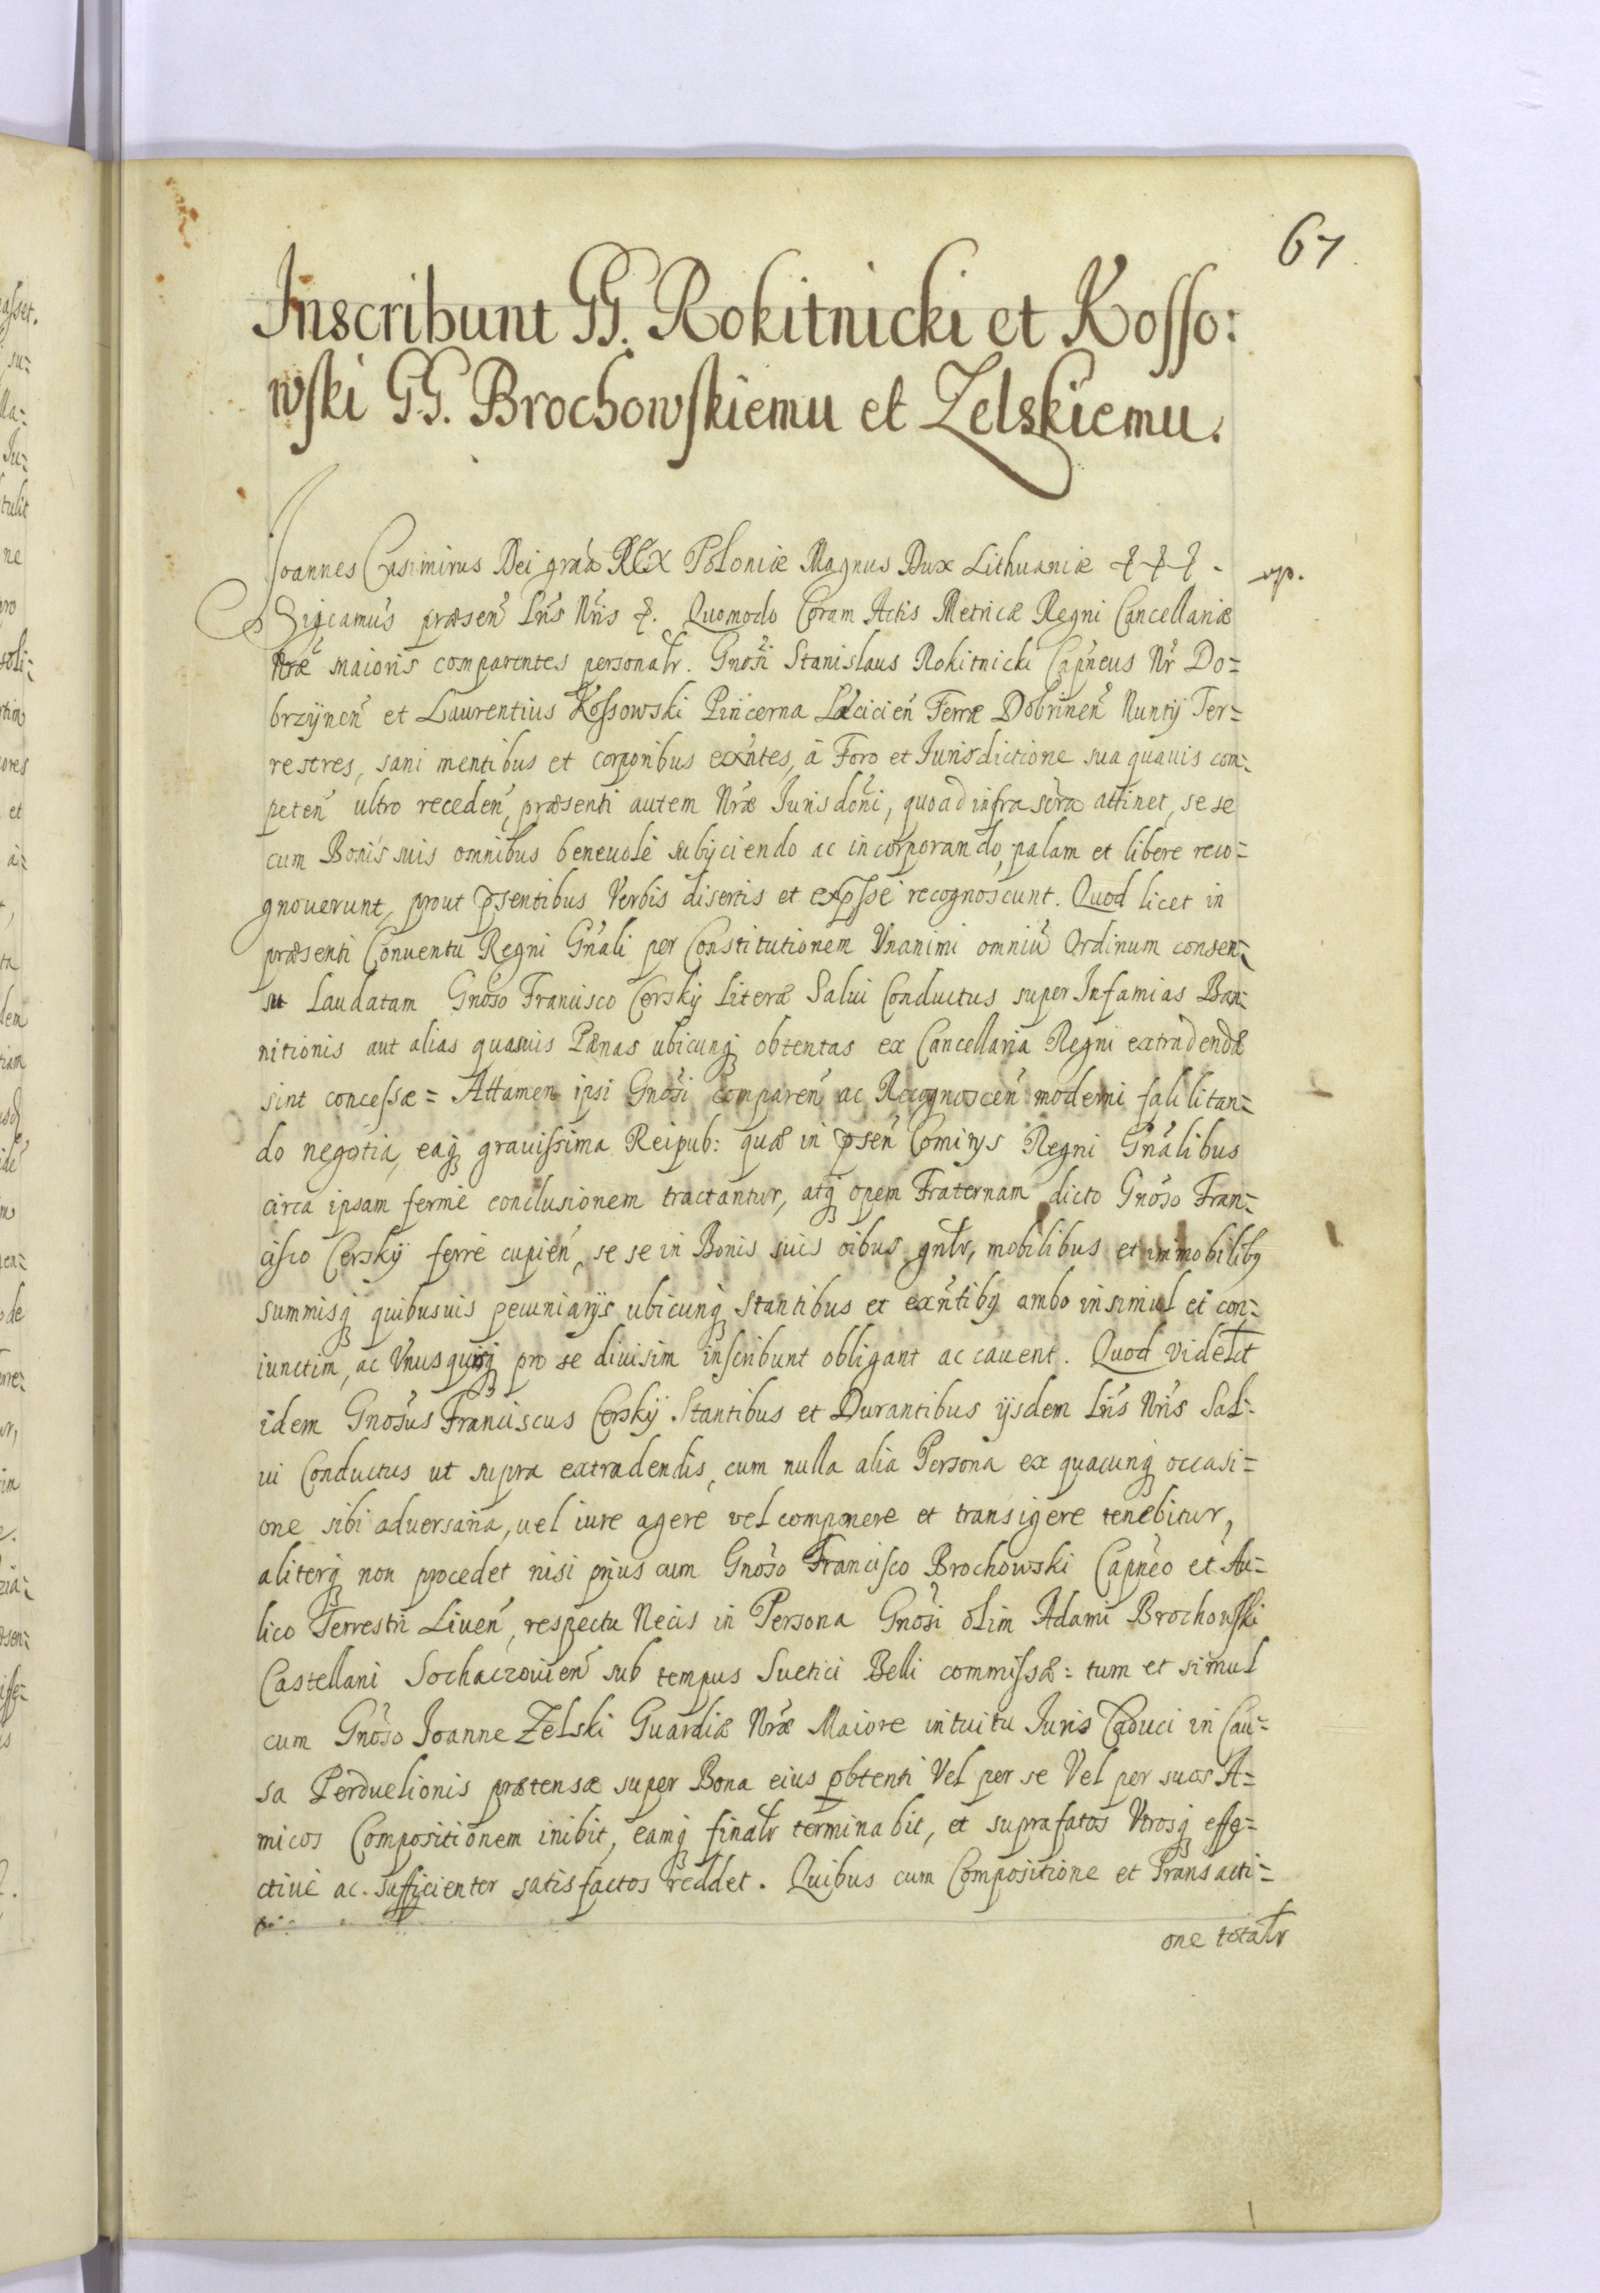 67
Inscribunt GG. Rokitnicki et Kosso:
wski GG. Brochowskiemu et Zelskiemu.
Joannes Casimirus Dei grãa REX Poloniæ Magnus Dux Lithuaniæ &&&.
Sigcamus præsen̄ Lr̃is Nr̃is &. Quomodo Coram Actis Metricæ Regni Cancellariæ
Nræ maioris comparentes personalr. Gnosi Stanislaus Rokitnicki Capñeus Nr̃ Do=
brzÿnen̄ et Laurentius Kossowski Pincerna Læcicien̄ Terræ Dobrinen̄ Nuntÿ Ter=
restres, sani mentibus et corporibus exñtes, à Foro et Jurisdictione sua quavis com=
peten̄ ultro receden̄, præsenti autem Nræ Jurisdoñi, quoad infra scr̃a attinet, se se
cum Bonis suis omnibus benevolè subÿciendo ac incorporando, palam et libere reco=
gnoverunt, prout p̃sentibus Verbis disertis et exp̃sse recognoscunt. Quod licet in
præsenti Conventu Regni Gñali per Constitutionem Unanimi omniū Ordinum consen=
su Laudatam Gnoso Francisco Cerskÿ Literæ Salvi Conductus super Infamias Ban=
nitionis aut alias quasvis Pænas ubicunq̃ obtentas ex Cancellaria Regni extradendæ
sint concessæ = Attamen ipsi Gnosi comparen̄ ac Recognoscen̄ moderni falilitan=
do negotia, eaq̃ gravissima Reipub: quæ in p̃sen̄ Comitÿs Regni Gñalibus
circa ipsam fermè conclusionem tractantur, atq̃ opem Fraternam dicto Gnoso Fran=
cisco Cerskÿ ferrè cupien̄, se se in Bonis suis oibus gnl̃r, mobilibus et immobilibq
summisq̃ quibusvis pecuniarÿs ubicunq̃ stantibus et exñtibq ambo insimul et con=
iunctim, ac Unusquisq̃ pro se divisim inscribunt obligant ac cavent. Quod videlt
idem Gnosus Franciscus Cerskÿ Stantibus et Durantibus ÿsdem Lr̃is Nr̃is Sal=
vi Conductus ut supra extradendis, cum nulla alia Persona ex quacunq̃ occasi=
one sibi adversaria, vel iure agere vel componere et transigere tenebitur,
aliterq̃ non procedet nisi prius cum Gnoso Francisco Brochowski Capñeo et Au=
lico Terrestri Liven̄, respectu Necis in Persona Gnosi olim Adami Brochowski
Castellani Sochaczovien̄ sub tempus Suetici Belli commissæ = tum et simul
cum Gnoso Joanne Zelski Guardiæ Nræ Maiore intuitu Juris Caduci in Cau=
sa Perduelionis prætensæ super Bona eius obtenti Vel per se Vel per suos A=
micos Compositionem inibit, eamq̃ finalr terminabit, et suprafatos Utrosq̃ effe=
ctivè ac sufficienter satisfactos reddet. Quibus cum Compositione et Transacti=
one totalr